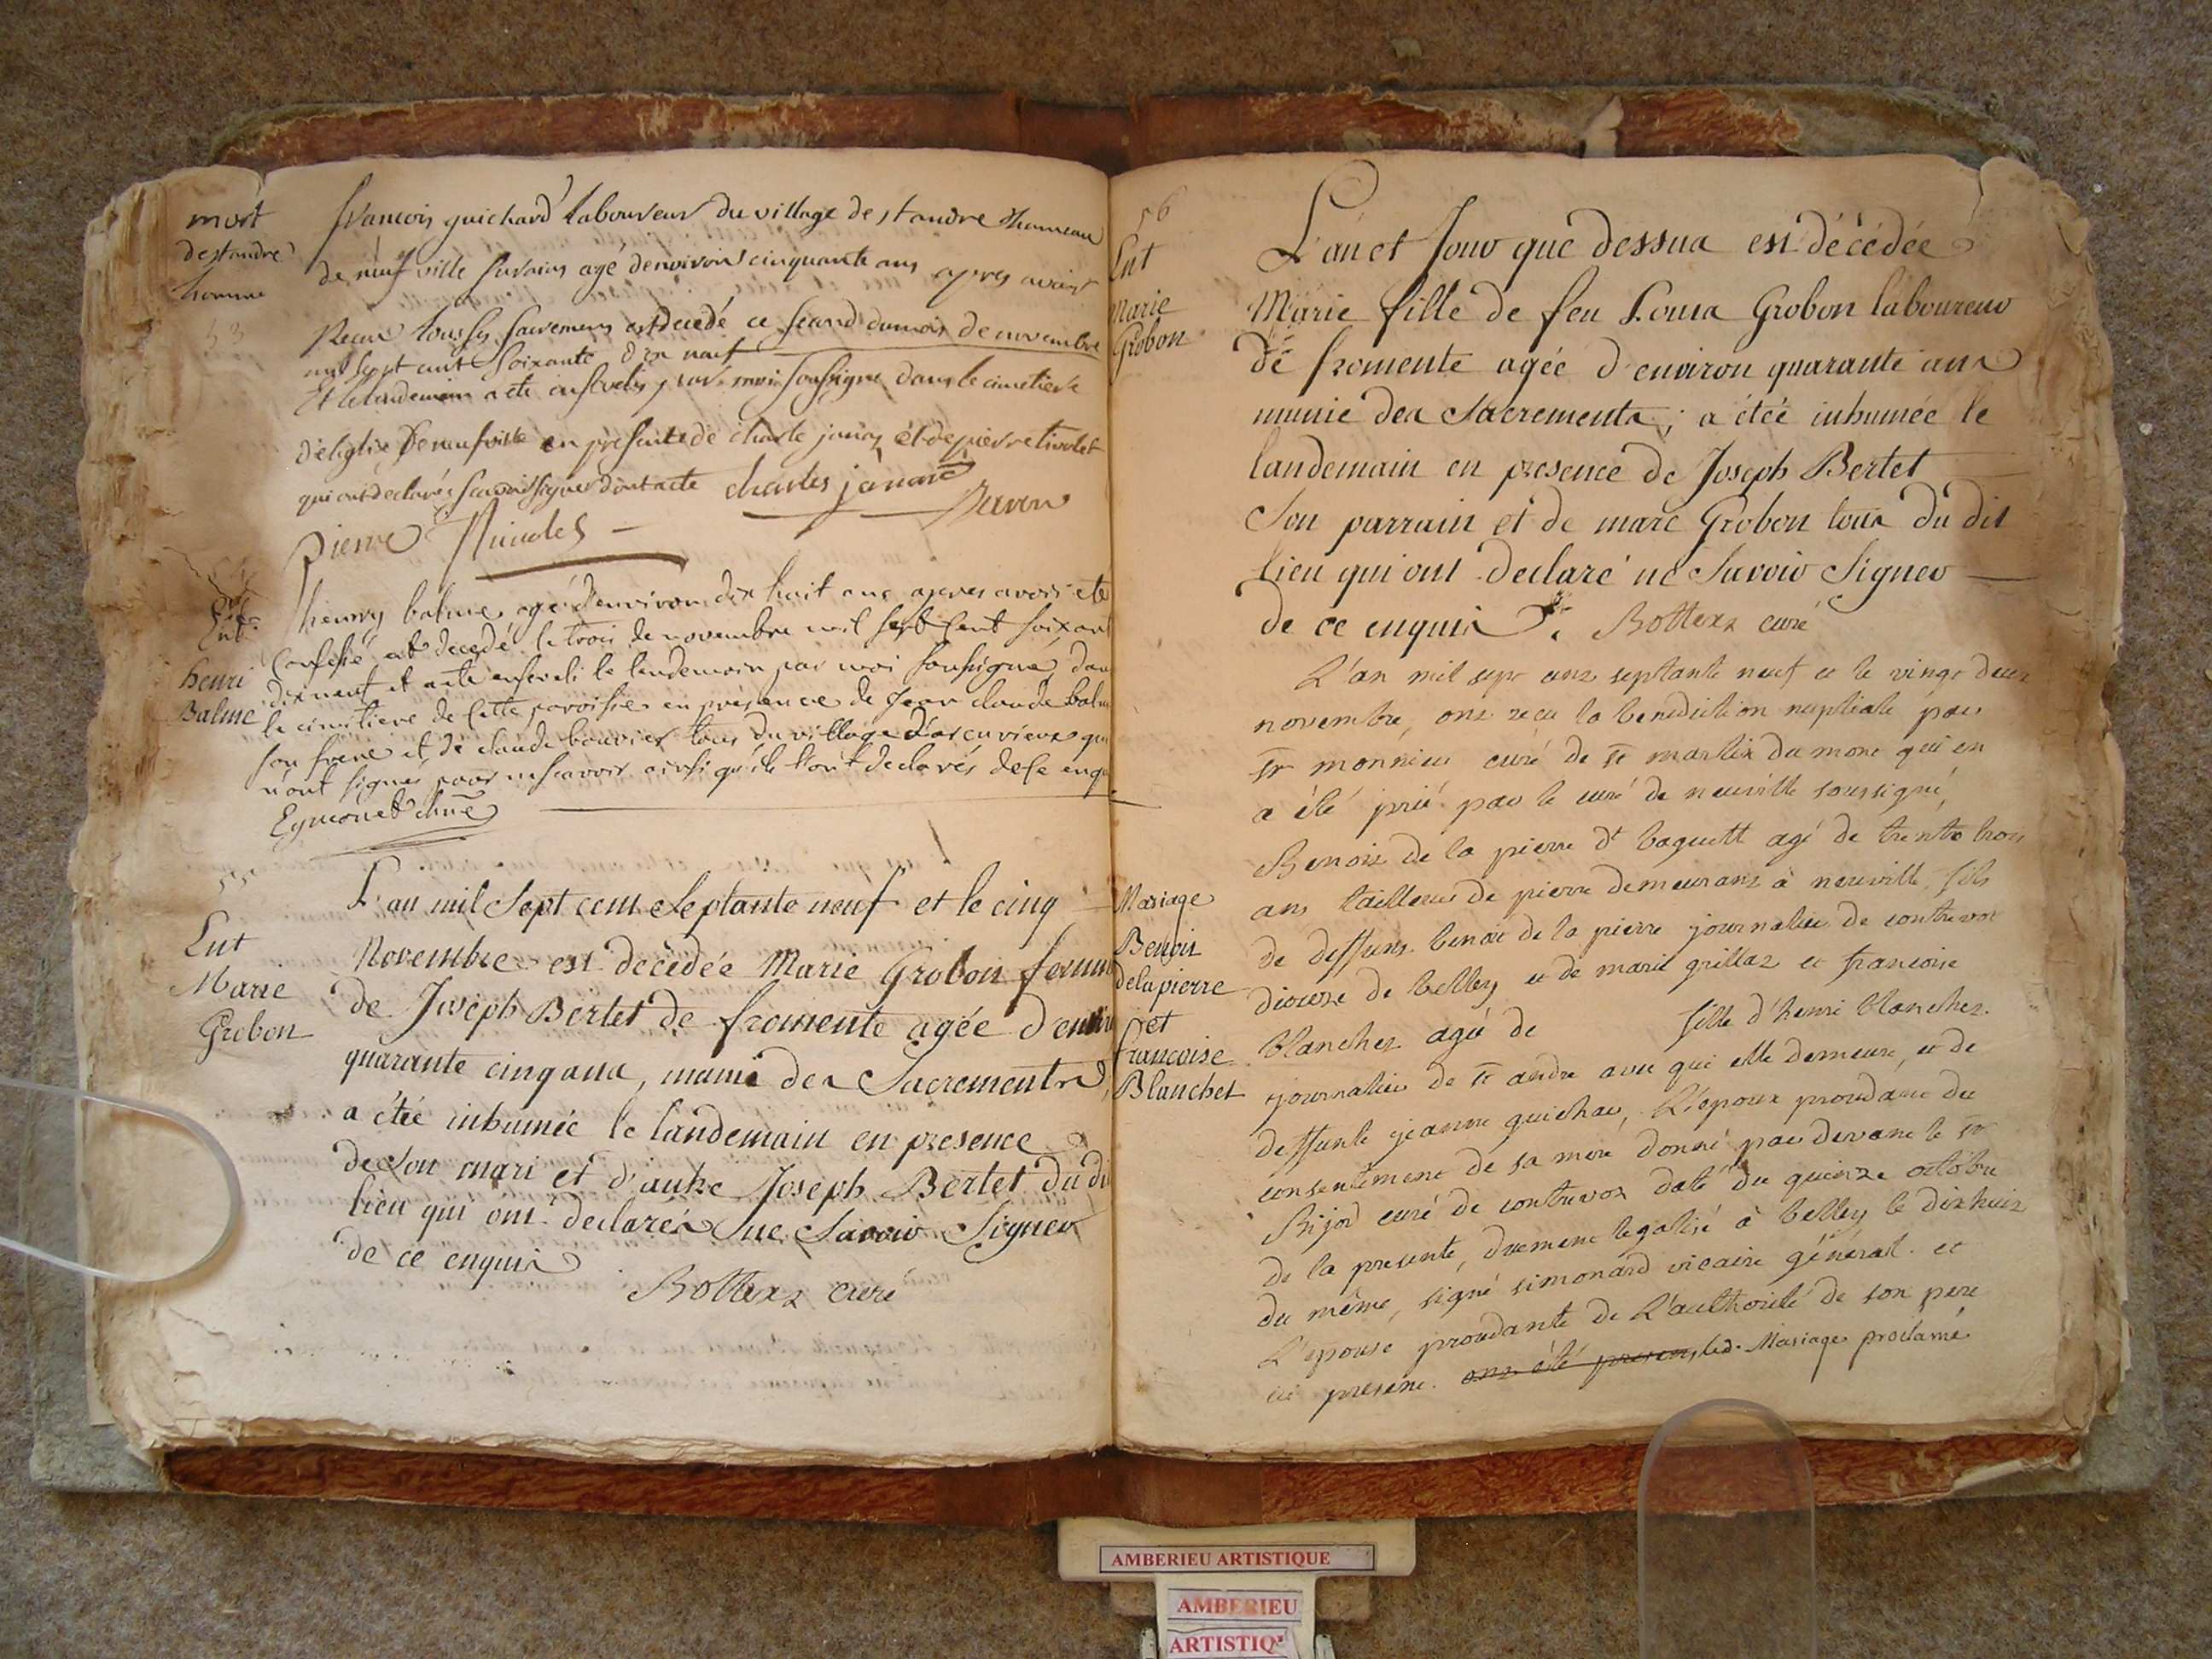 mort
de s tandre
homme
53
francois guichard laboureur du village de s tandre hameau
de neuf ville suraing agé denviron cinquante ans apres avoir
Recue tous ses sacremens est decedé ce second du mois de novembre
mil sept cent soixante dix neuf
Et le lendemain a ete enseveli par moi soussigné dans le cimetiere
d'eglise de neufville en presence de charle et de pierre
qui ont declarés scavoir signer dont acte charles
pierre
Ent
henri
Balme
henry balme agé d'environ dix huit ans apres avoir ete
Confessé est decedé le trois de novembre mil sept cent soixant
dix neuf et a ete enseveli le lendemain par moi soussigné dan
le cimetiere de cette paroisse en presence de jean claude balm
son frere et de claude bouvier tous du village qui
n'ont signes pour ne scavoir ainsi qu'ils l'ont declarés de ce enqu
55
Ent
Marie
Grobon
L'an mil Sept cent Septante neuf et le cinq
Novembre est décédée Marie Grobon femme
de Joseph Bertet de fromente agée d'envi
quarante cinq ans, munie des Sacrements
a étée inhumée le landemain en presence
de Son mari et d'autre Joseph Bertet du di
lieu qui ont declarés ne Savoir Signer
de ce enquis
Bottex curé
56
Ent
Marie
Grobon
L'an et Jour que dessus est décédée
Marie fille de feu Louis Grobon laboureur
de fromente agée d'environ quarante ans
munie des Sacrements; a étée inhumée le
landemain en presence de Joseph Bertet
Son parrain et de marc Grobon tous du dit
lieu qui ont declaré ne Savoir Signer
de ce enquis. Bottex curé
Mariage
Benoit
delapierre
et
francoise
Blanchet
L'an mil sept cent septante neuf et le vingt deux
novembre, ont reçu la benediction nuptiale par
sr monnier curé de st martin du mont qui en
a été prié par le curé de neuville soussigné,
Benoit de la pierre dt baquett agé de trente trois
ans tailleur de pierre demeurant à neuville, fils
de deffunt benoit de la pierre journalier de contrevoz
diocese de belley et de marie grillaz et francoise
blanchet agée de fille d'henri blanchet
journalier de st andre avec qui elle demeure, et de
deffunte jeanne guichar, L'epoux procedant du
consentement de sa mere donné par devant le sr
curé de contrevoz daté du quinze octobre
de la presente, duement legalisé à belley le dix huit
du même, signé simonard vicaire général. et
L'epouse procedante de L'authorité de son pere
ici present. ont été presens led. Mariage proclamé
AMBERIEU ARTISTIQUE
AMBERIEU
ARTISTIQ